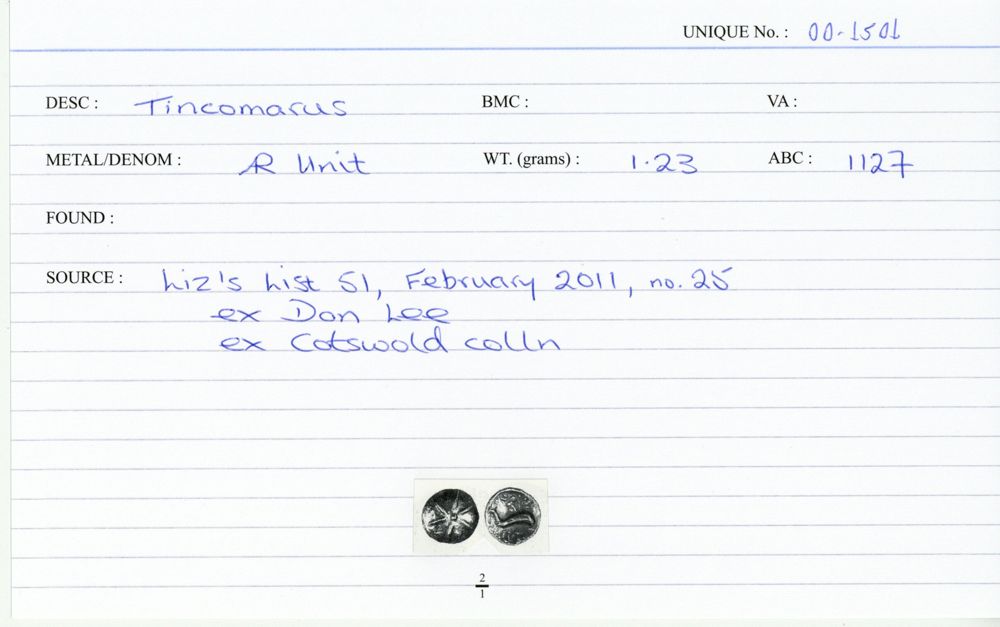 UNIQUE No. : 00-1501
DESC : Tincomarus BMC : VA :
METAL/DENOM : AR Unit WT. (grams) : 1.23 ABC : 1127
FOUND :
SOURCE : Liz's List 51, February 2011, no. 25
ex Don Lee
ex Cotswold colln
2
1